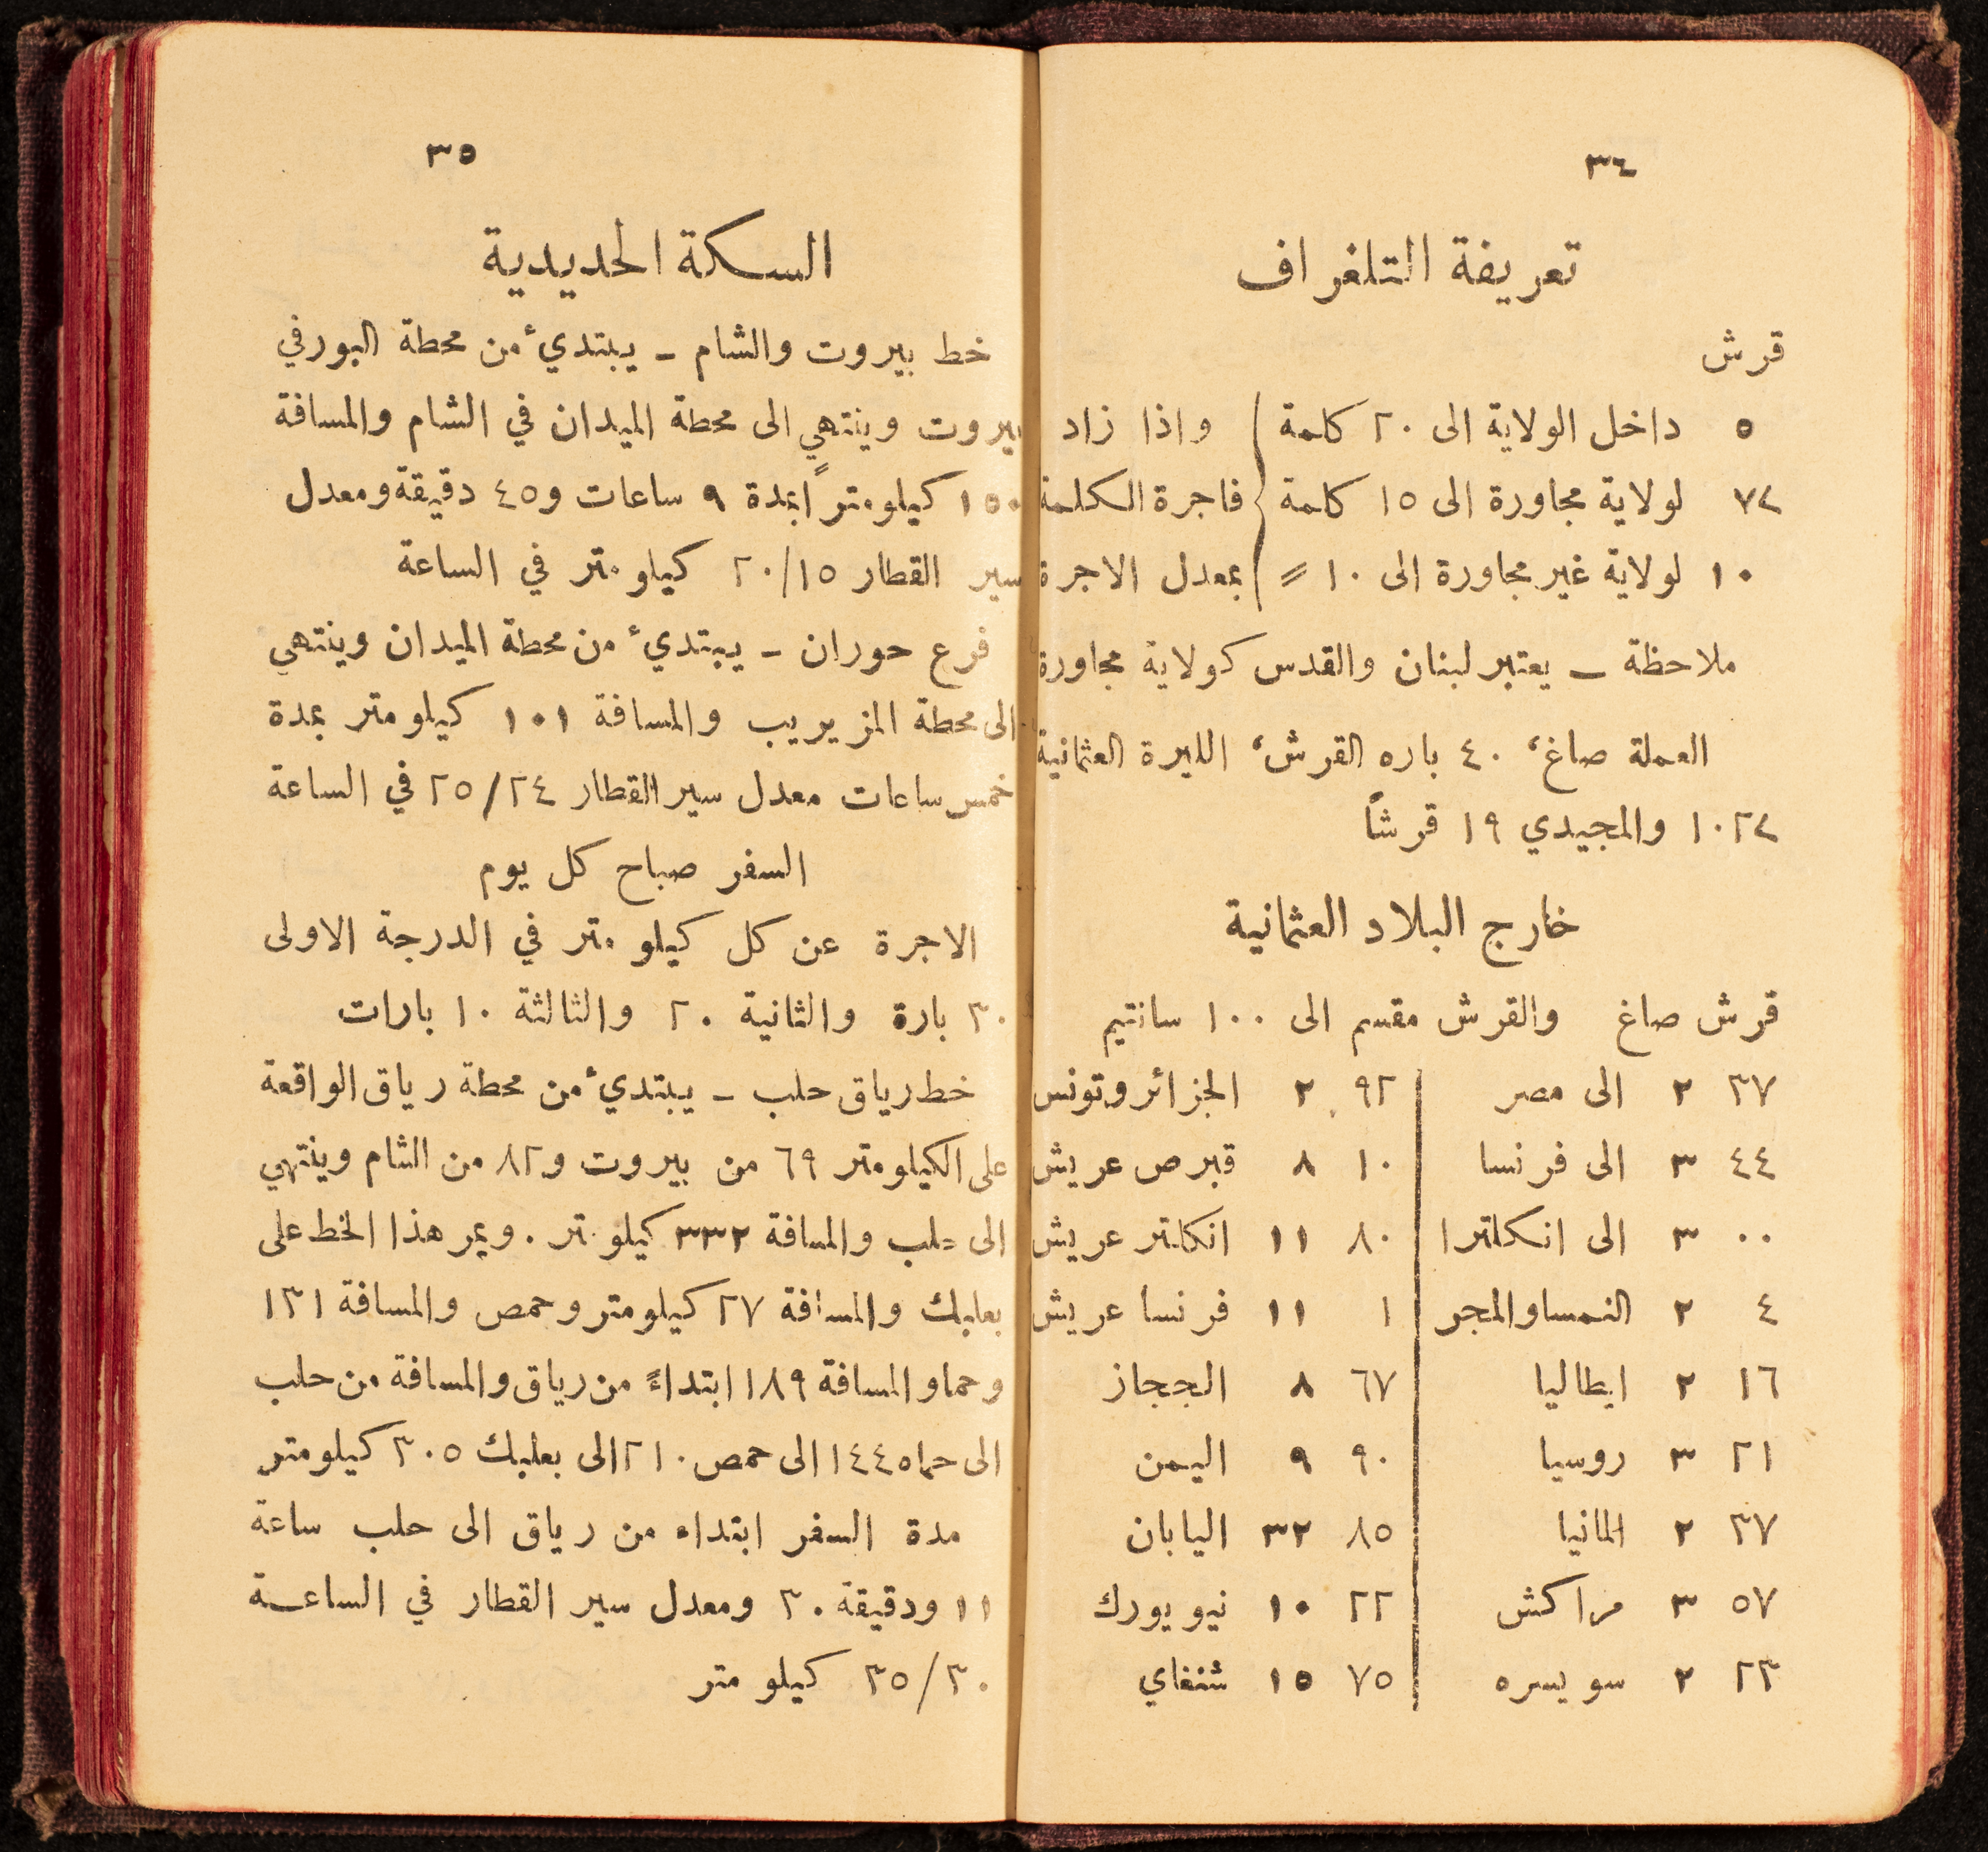 ٣٤
تعريفة التلغراف
قرش
٥ داخل الولاية الى ٢٠ كلمة واذا زاد
٧½ لولاية مجاورة الى ١٥ كلمة فاجرة الكلمة
١٠ لولاية غير مجاورة الى ١٠ = بمعدل الاجرة
ملاحظة – يعتبر لبنان والقدس كولاية مجاورة
العملة صاغ، ٤٠ باره القرش، الليرة العثمانية
١٠٢½ والمجيدي ١٩ قرشاً
خارج البلاد العثمانية
قرش صاغ والقرش مقسم الى ١٠٠ سانتيم
٣٧ ٢ الى مصر ٩٢ ٢ الجزائر وتونس
٤٤ ٣ الى فرنسا ١٠ ٨ قبرص عريش
٠٠ ٣ الى انكلترا ٨٠ ١١ انكلتر عريش
٤ ٢ النمسا والمجر ١ ١١ فرنسا عريش
١٦ ٢ ايطاليا ٦٧ ٨ الحجاز
٢١ ٣ روسيا ٩٠ ٩ اليمن
٣٧ ٢ المانيا ٨٥ ٣٢ اليابان
٥٧ ٣ مراكش ٢٢ ١٠ نيو يورك
٢٣ ٢ سويسره ٧٥ ١٥ شنغاي
٣٥
السكة الحديدية
خط بيروت والشام – يبتدئ من محطة البور في
بيروت وينتهي الى محطة الميدان في الشام والمسافة
١٥٠ كيلومتراً بمدة ٩ ساعات و٤٥ دقيقة ومعدل
سير القطار ٢٠/١٥ كيلو متر في الساعة
فرع حوران – يبتدئ من محطة الميدان وينتهي
الى محطة المزيريب والمسافة ١٠١ كيلو متر بمدة
خمس ساعات معدل سير القطار ٢٥/٢٤ في الساعة
السفر صباح كل يوم
الاجرة عن كل كيلو متر في الدرجة الاولى
٣٠ بارة والثانية ٢٠ والثالثة ١٠ بارات
خط رياق حلب – يبتدئ من محطة رياق الواقعة
على الكيلو متر ٦٩ من بيروت و٨٢ من الشام وينتهي
الى حلب والمسافة ٣٣٢ كيلو متر . ويمر هذا الخط على
بعلبك والمسافة ٢٧ كيلو متر وحمص والمسافة ١٣١
وحما والمسافة ١٨٩ ابتداءً من رياق والمسافة من حلب
الى حماه ١٤٤ الى حمص ٢١٠ الى بعلبك ٣٠٥ كيلو متر
مدة السفر ابتداء من رياق الى حلب ساعة
١١ ودقيقة ٣٠ ومعدل سير القطار في الساعة
٣٥/٣٠ كيلو متر